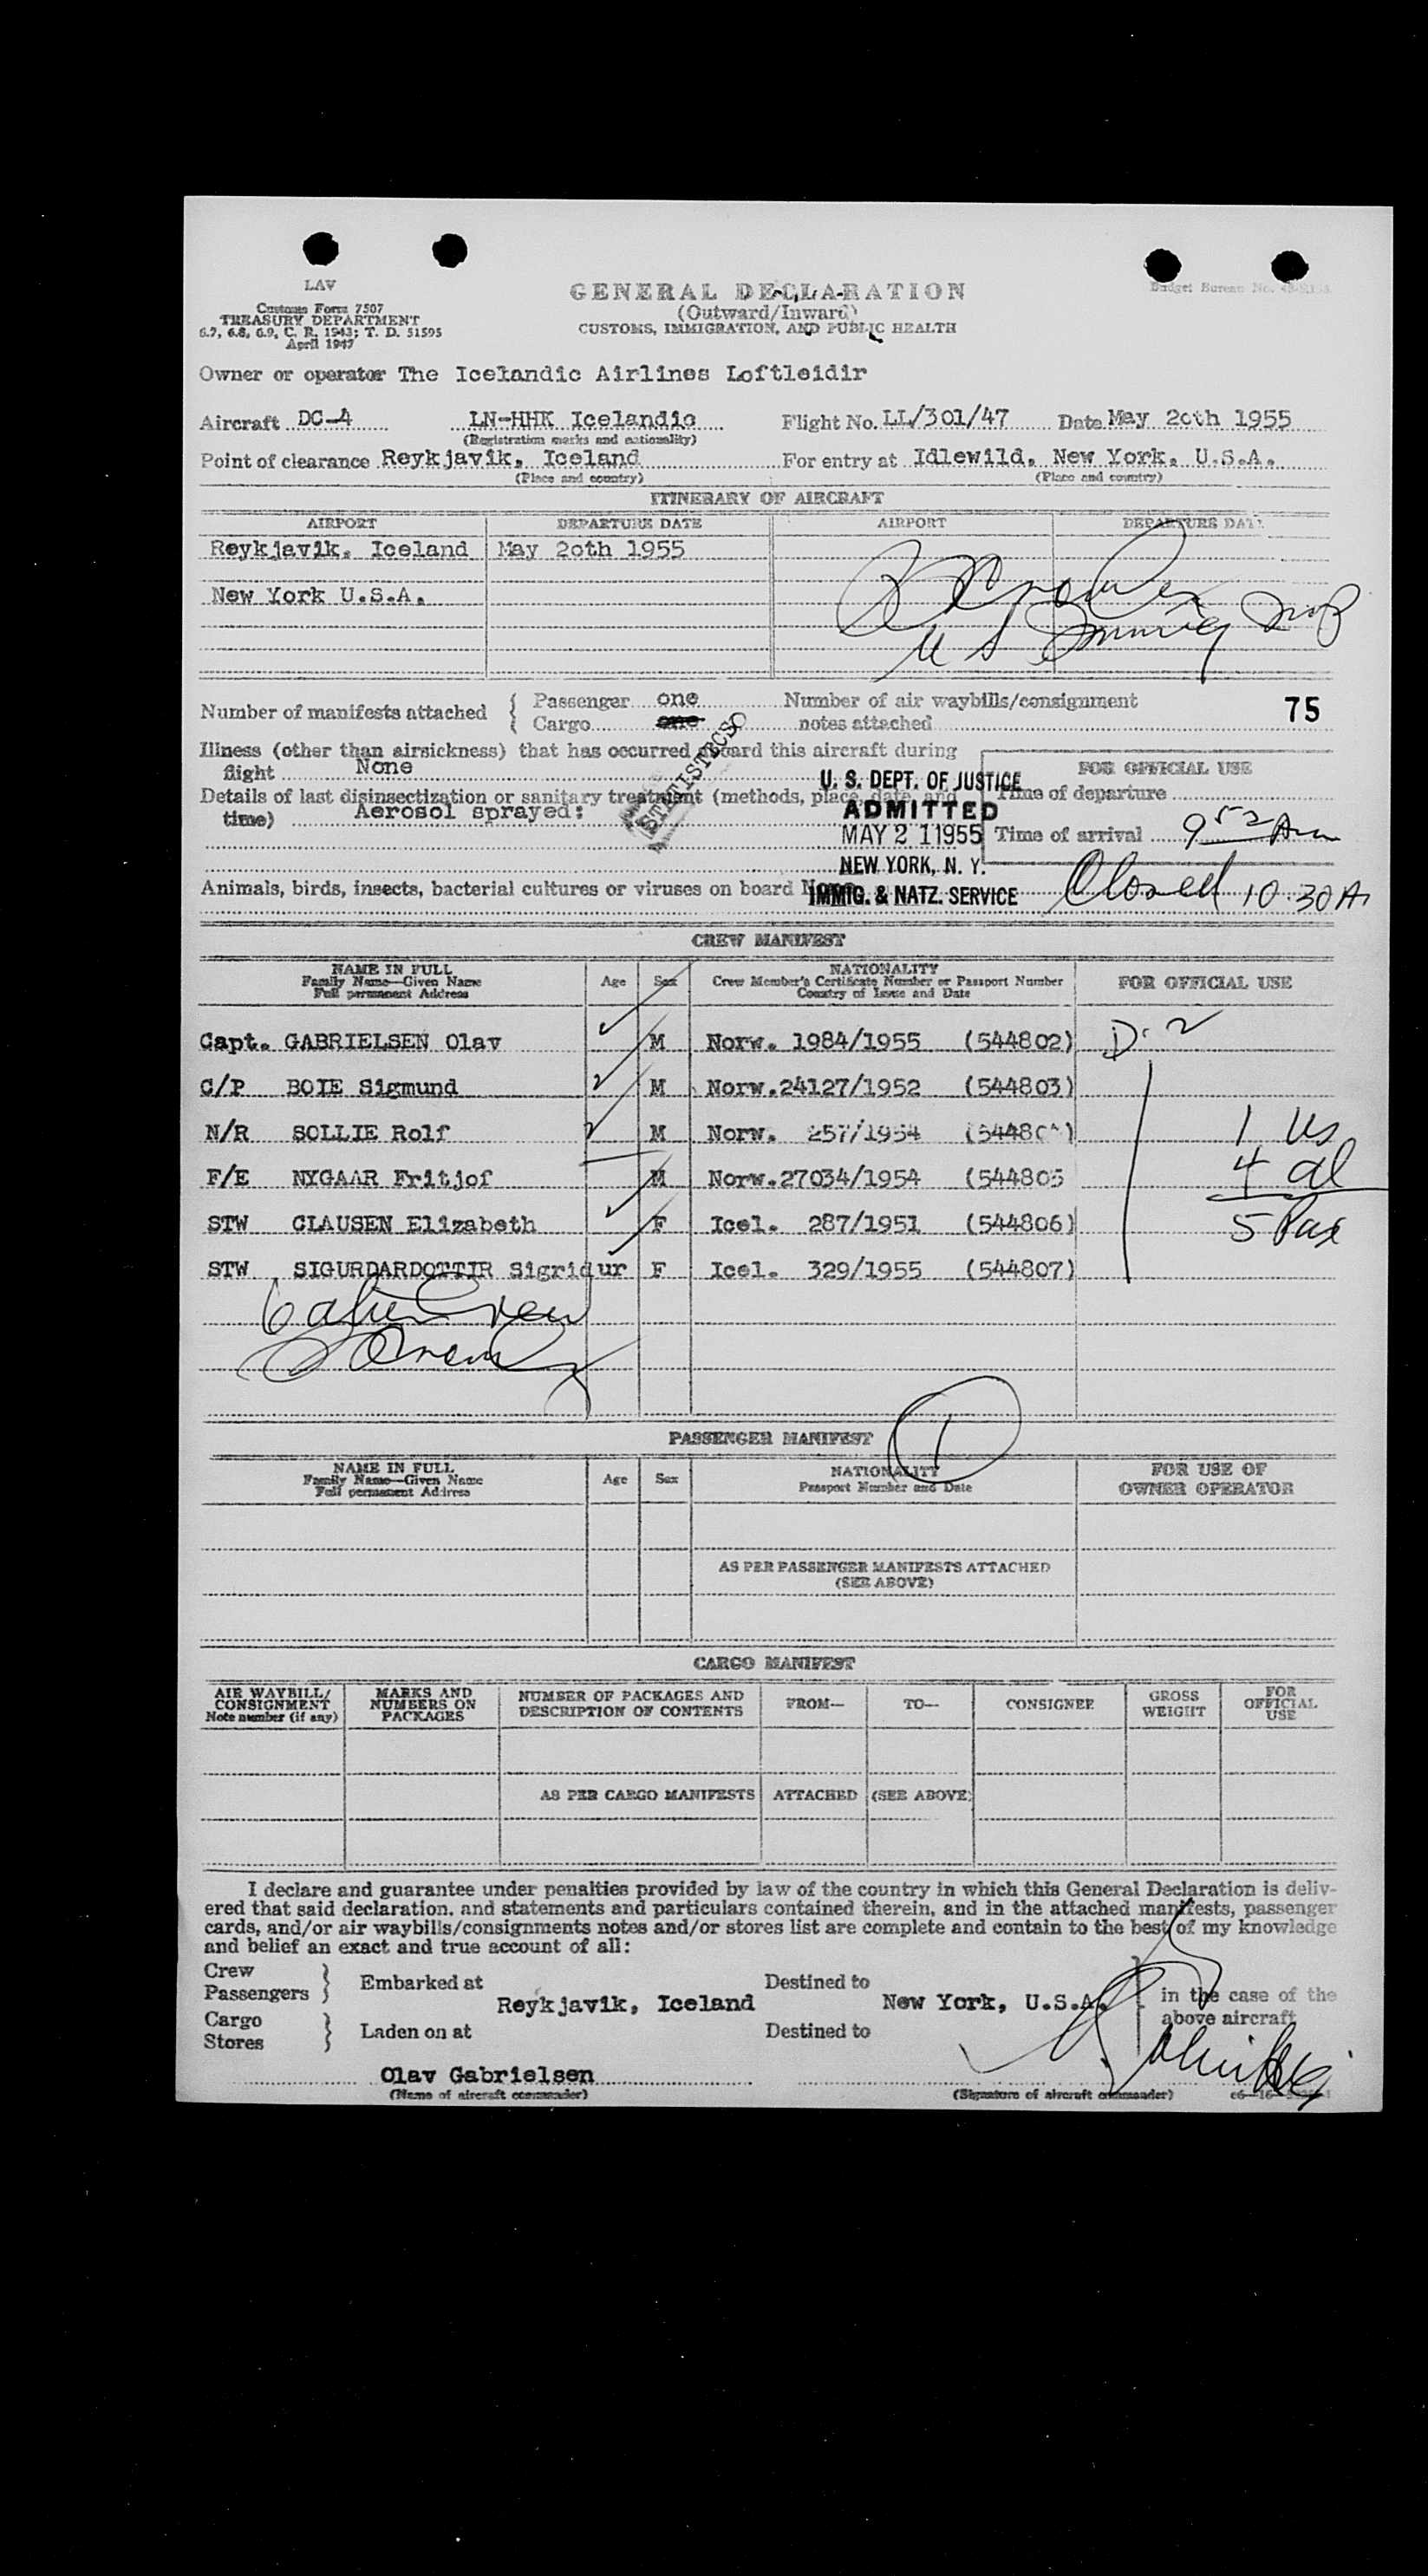 LAV
Customs Form 7507
TREASURY DEPARTMENT
6.7, 6.8, 6.9, C. R. 1943; T. D. 51595
April 1947
GENERAL DECLARATION
(Outward/Inward)
CUSTOMS, IMMIGRATION, AND PUBLIC HEALTH
Budget Bureau No.
Owner or operator The Icelandic Airlines Loftleidir
Aircraft DC-4 LN-HHK Icelandic Flight No. LL/301/47 Date May 2oth 1955
(Registration marks and nationality)
Point of clearance Reykjavik, Iceland For entry at Idlewild, New York, U.S.A.
(Place and country) (Place and country)
ITINERARY OF AIRCRAFT
AIRPORT DEPARTURE DATE AIRPORT DEPARTURE DATE
Reykjavik, Iceland May 2oth 1955
New York U.S.A.
U S Immig Insp
Number of manifests attached { Passenger one Number of air waybills/consignment
Cargo one notes attached
75
Illness (other than airsickness) that has occurred aboard this aircraft during
flight None
STATISTICS
FOR OFFICIAL USE
Details of last disinsectization or sanitary treatment (methods, place, date, and
time) Aerosol sprayed:
Time of departure
Time of arrival 9 52 Am
U. S. DEPT. OF JUSTICE
ADMITTED
MAY 21 1955
NEW YORK, N. Y.
IMMIG. & NATZ. SERVICE
Animals, birds, insects, bacterial cultures or viruses on board None
Closed 10:30 A
CREW MANIFEST
NAME IN FULL Age Sex NATIONALITY FOR OFFICIAL USE
Family Name—Given Name Crew Member's Certificate Number or Passport Number
Full permanent Address Country of Issue and Date
Capt. GABRIELSEN Olav M Norw. 1984/1955 (544802) D-2
C/P BOIE Sigmund M Norw.24127/1952 (544803)
N/R SOLLIE Rolf M Norw. 257/1954 (54480 ) 1 US
F/E NYGAAR Fritjof M Norw.27034/1954 (544805 4 al
STW CLAUSEN Elizabeth F Icel. 287/1951 (544806) 5 Pax
STW SIGURDARDOTTIR Sigridur F Icel. 329/1955 (544807)
6 alien Crew
1
PASSENGER MANIFEST
NAME IN FULL Age Sex NATIONALITY FOR USE OF
Family Name—Given Name Passport Number and Date OWNER OPERATOR
Full permanent Address
AS PER PASSENGER MANIFESTS ATTACHED
(SEE ABOVE)
CARGO MANIFEST
AIR WAYBILL/ MARKS AND NUMBER OF PACKAGES AND FROM— TO— CONSIGNEE GROSS FOR
CONSIGNMENT NUMBERS ON DESCRIPTION OF CONTENTS WEIGHT OFFICIAL
Note number (if any) PACKAGES USE
AS PER CARGO MANIFESTS ATTACHED (SEE ABOVE)
I declare and guarantee under penalties provided by law of the country in which this General Declaration is deliv-
ered that said declaration, and statements and particulars contained therein, and in the attached manifests, passenger
cards, and/or air waybills/consignments notes and/or stores list are complete and contain to the best of my knowledge
and belief an exact and true account of all:
Crew
Passengers } Embarked at Reykjavik, Iceland Destined to New York, U.S.A. } in the case of the
above aircraft
Cargo
Stores } Laden on at Destined to
Olav Gabrielsen
(Name of aircraft commander) (Signature of aircraft commander)